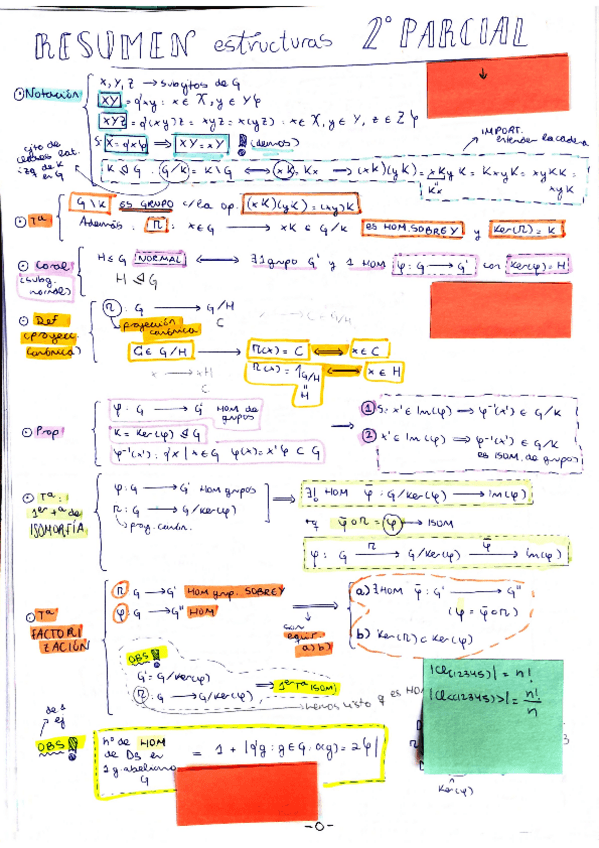 RESUMEN estructuras 2º PARCIAL
⊙ Notación
X, Y, Z → subcjtos de G
XY = {xy : x ∈ X, y ∈ Y}
XYZ = {(xy)z = xyz = x(yz) : x ∈ X, y ∈ Y, z ∈ Z}
Si X = {x} ⟹ XY = xY (demos)
IMPORT.
entender la cadena
cjto de
clases lat.
izq de K
en G
K ⊴ G. G/K = K\G ⟷ xK = Kx ⟶ (xK)(yK) = xKyK = KxyK = xyKK =
Kx
xyK
⊙ Tª
G\K ES GRUPO c/la op. (xK)(yK) = (xy)K
Además. π : x∈G ⟶ xK ∈ G/K ES HOM. SOBREY y Ker(π) = K
⊙ Corol
(subg.
normal)
H ≤ G NORMAL ⟷ ∃ 1 grupo G' y 1 HOM φ: G → G' con Ker(φ) = H
H ⊴ G
⊙ Def
(proyecc.
canónica)
π : G ⟶ G/H
C
proyección
canónica
C ∈ G/H ⟶ π(x) = C ⟺ x ∈ C
x ⟶ xH
C
π(x) = 1G/H ⟷ x ∈ H
H
⊙ Prop
φ : G ⟶ G' HOM de
grupos
K = Ker(φ) ⊴ G
φ⁻¹(x') : {x | x ∈ G φ(x) = x'} ⊂ G
① Si x' ∈ Im(φ) ⟹ φ⁻¹(x') ∈ G/K
② x' ∈ Im(φ) ⟹ φ⁻¹(x') ∈ G/K
es ISOM. de grupos
⊙ Tª :
1er tª de
ISOMORFÍA
φ : G ⟶ G' HOM grupos
π : G ⟶ G/Ker(φ)
proy. canón.
∃! HOM φ̄ : G/Ker(φ) ⟶ Im(φ)
tq φ̄ ∘ π = φ → ISOM
φ : G ⟶ G/Ker(φ) ⟶ Im(φ)
π φ̄
⊙ Tª
FACTORI
ZACIÓN
π : G ⟶ G' HOM grup. SOBREY
φ : G ⟶ G'' HOM
son
equiv.
a) b)
a) ∃ HOM φ̄ : G' ⟶ G''
(φ = φ̄ ∘ π)
b) Ker(π) ⊂ Ker(φ)
OBS
G' = G/Ker(φ)
π : G ⟶ G/Ker(φ) ⟹ 1er Tª ISOM
hemos visto q es HOM
|Cl(12345)| = n!
|Cl(<(12345)>)| = n!/n
OBS
nº de HOM
de D3 en
1 g. abeliano
G
= 1 + |{g : g ∈ G. o(g) = 2}|
Ker(φ)
-0-